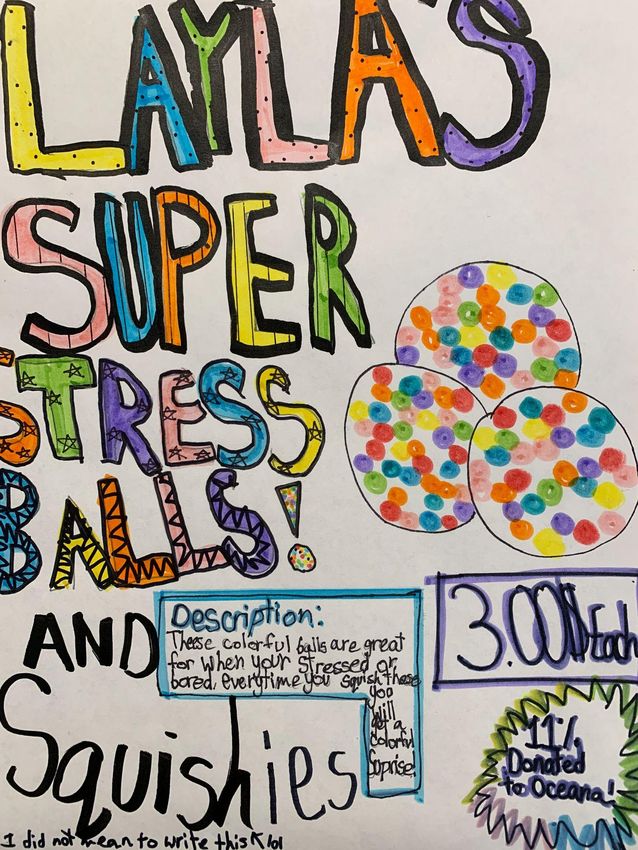 LAYLA'S
SUPER
STRESS
BALLS!
AND
Squishies
Description:
These colorful balls are great
for when your stressed or
bored, everytime you squish these
you
will
get a
colorful
Suprise!
3.00$ Each
11%
Donated
to Oceana!
I did not mean to write this lol